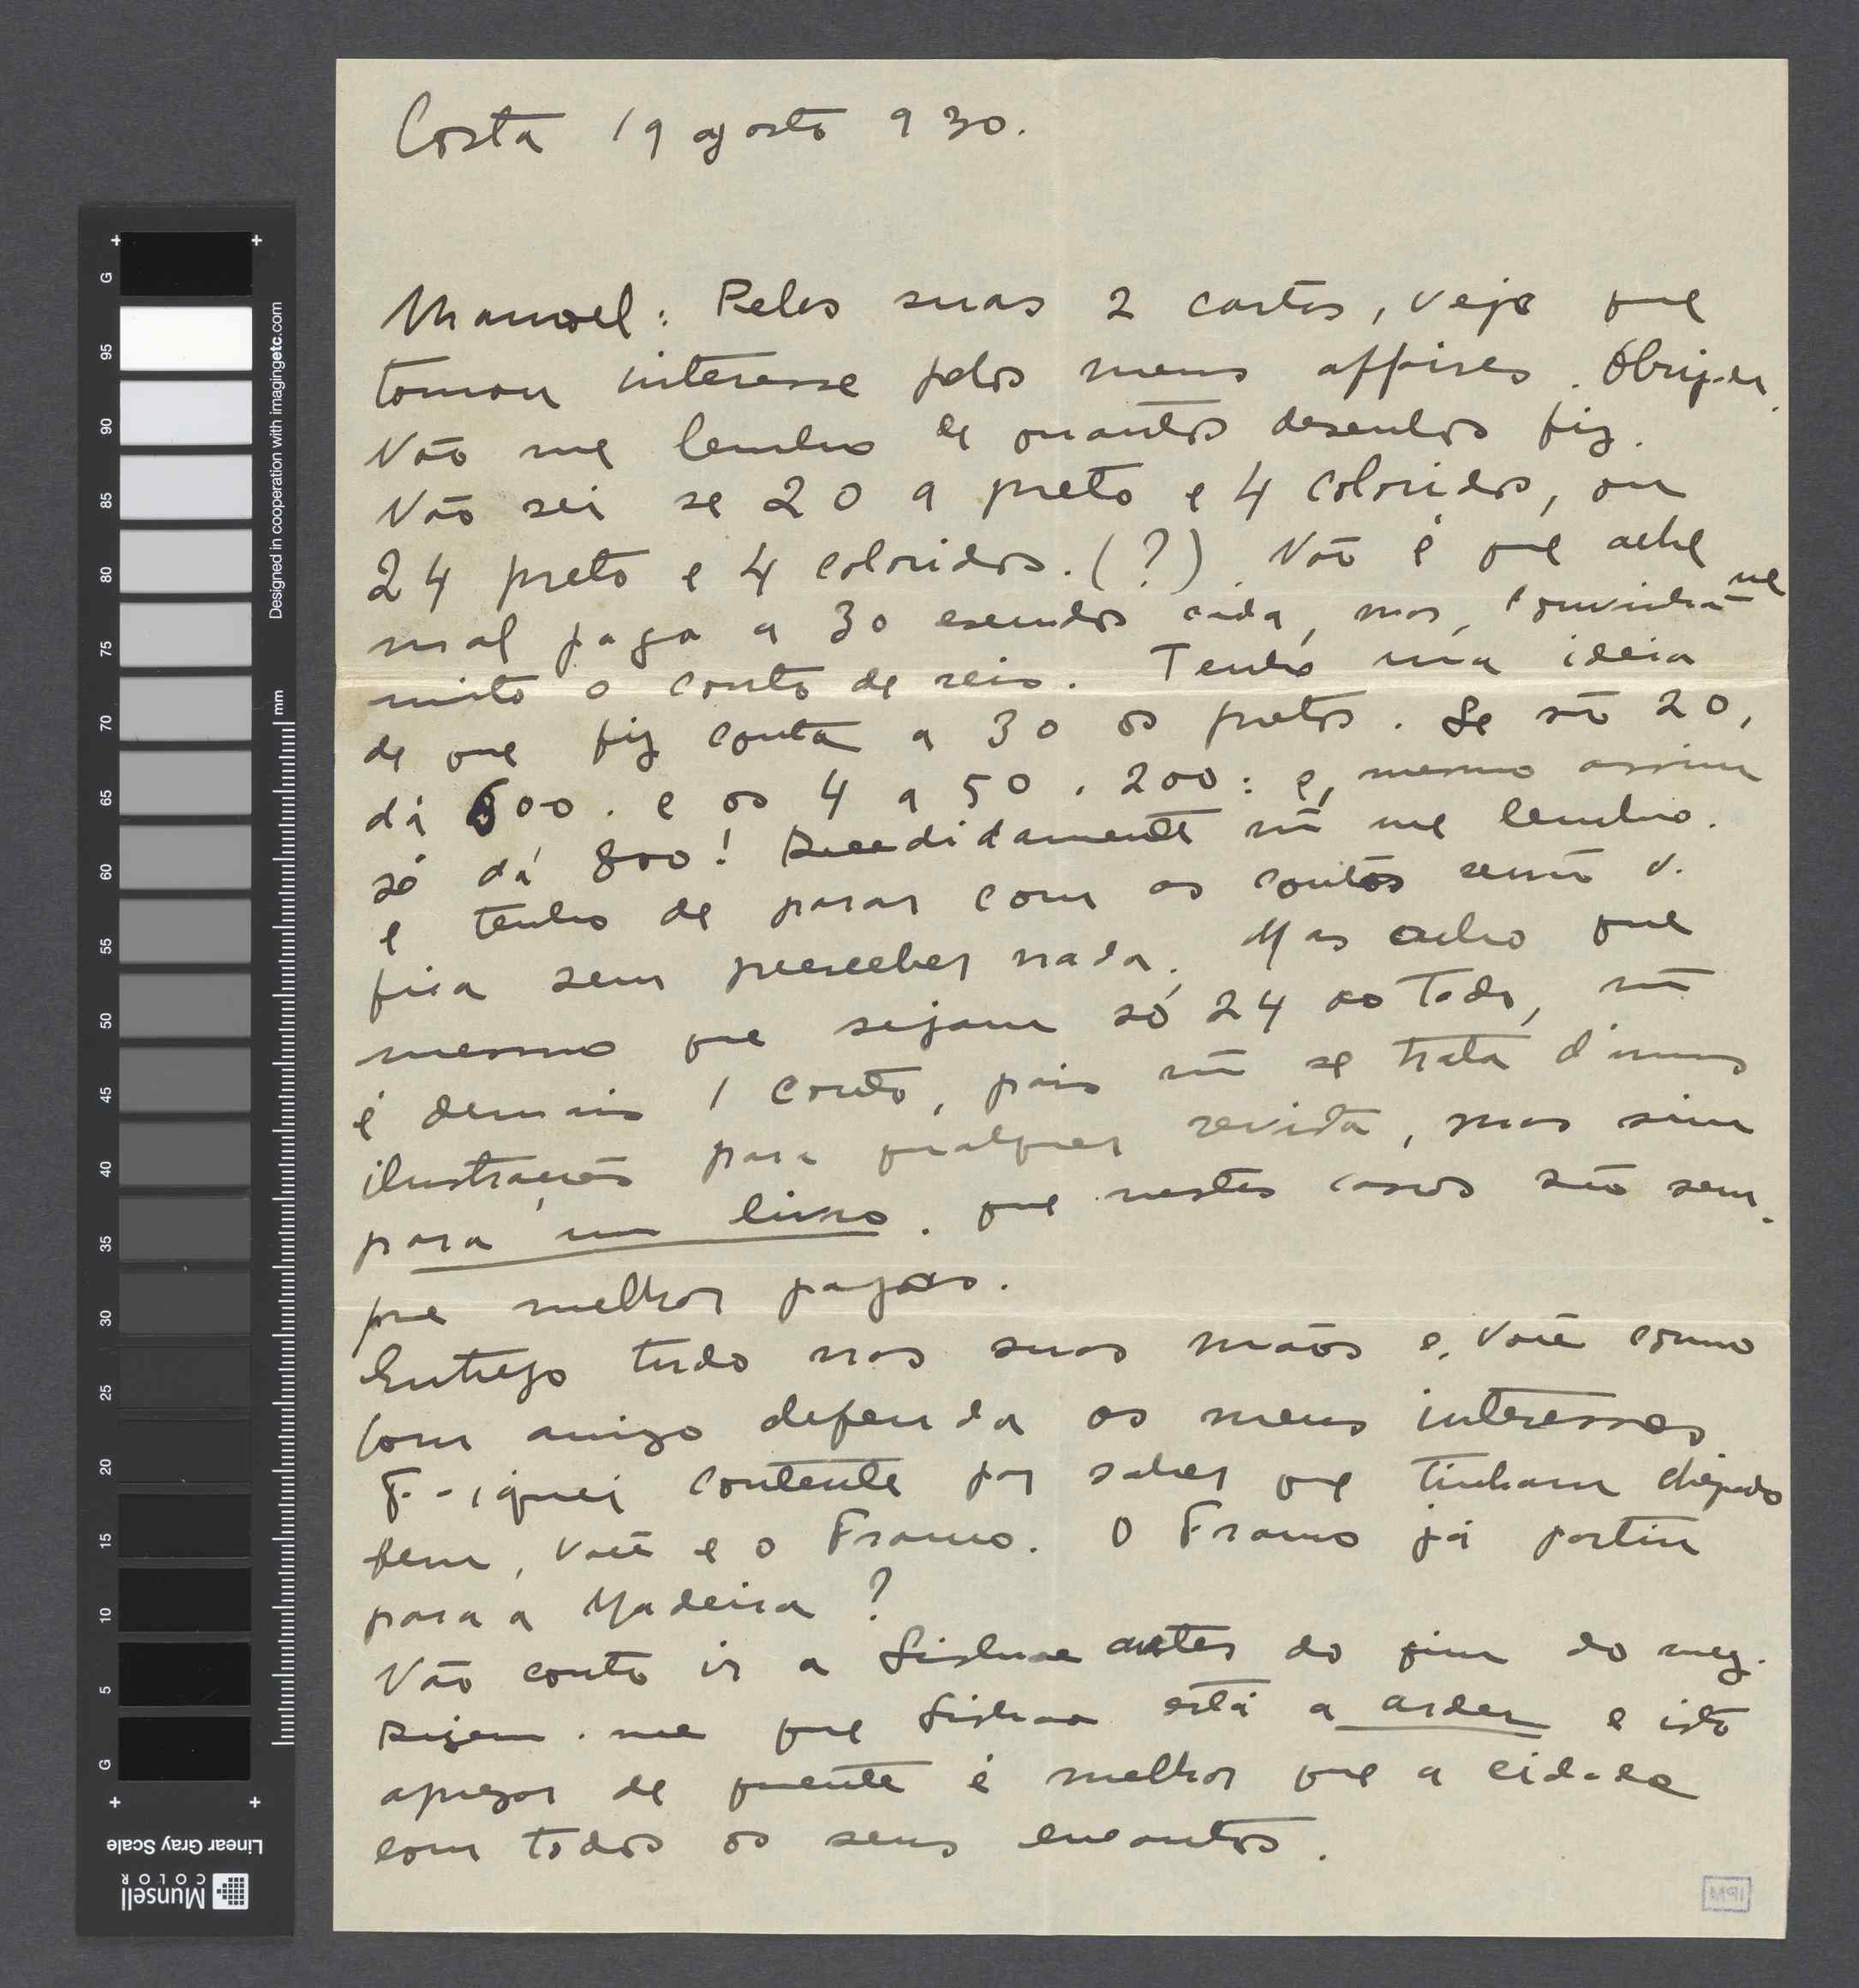 Costa 19 agosto 930.
Manoel: Pelas suas 2 cartas, vejo que
tomou interesse pelos meus affaires. Obrigada.
Não me lembro de quantos desenhos fiz.
Não sei se 20 a preto e 4 coloridos, ou
24 preto e 4 coloridos. (?). Não é que ache
mal paga a 30 escudos cada, mas, convinha-me
muito o conto de reis. Tenho uma ideia
de que fiz conta a 30 os pretos. Se são 20,
dá 600. e os 4 a 50, 200: e, mesmo assim
só dá 800! Decedidamente não me lembro.
e tenho de parar com as contas senão v.
fica sem preeceber nada. Mas acho que
mesmo que sejam só 24 ao todo, não
é demais 1 conto, pois não se trata d'umas
ilustrações para qualquer revista, mas sim
para um livro. que nestes casos são sem-
pre melhor pagas.
Entrego tudo nas suas mãos e, você como
bom amigo defenda os meus interesses.
F--iquei contente por saber que tinham chegado
bem, você e o Franco. O Franco já partiu
para a Madeira?
Não conto ir a Lisboa antes do fim do mez.
Dizem-me que Lisboa está a arder e isto
apezar de quente é melhor que a cidade
com todos os seus encantos.
G
95
90
85
80
75
70
65
60
55
50
45
40
35
30
25
20
15
10
5
G
mm
Designed in cooperation with imagingetc.com
Linear Gray Scale
Munsell
COLOR